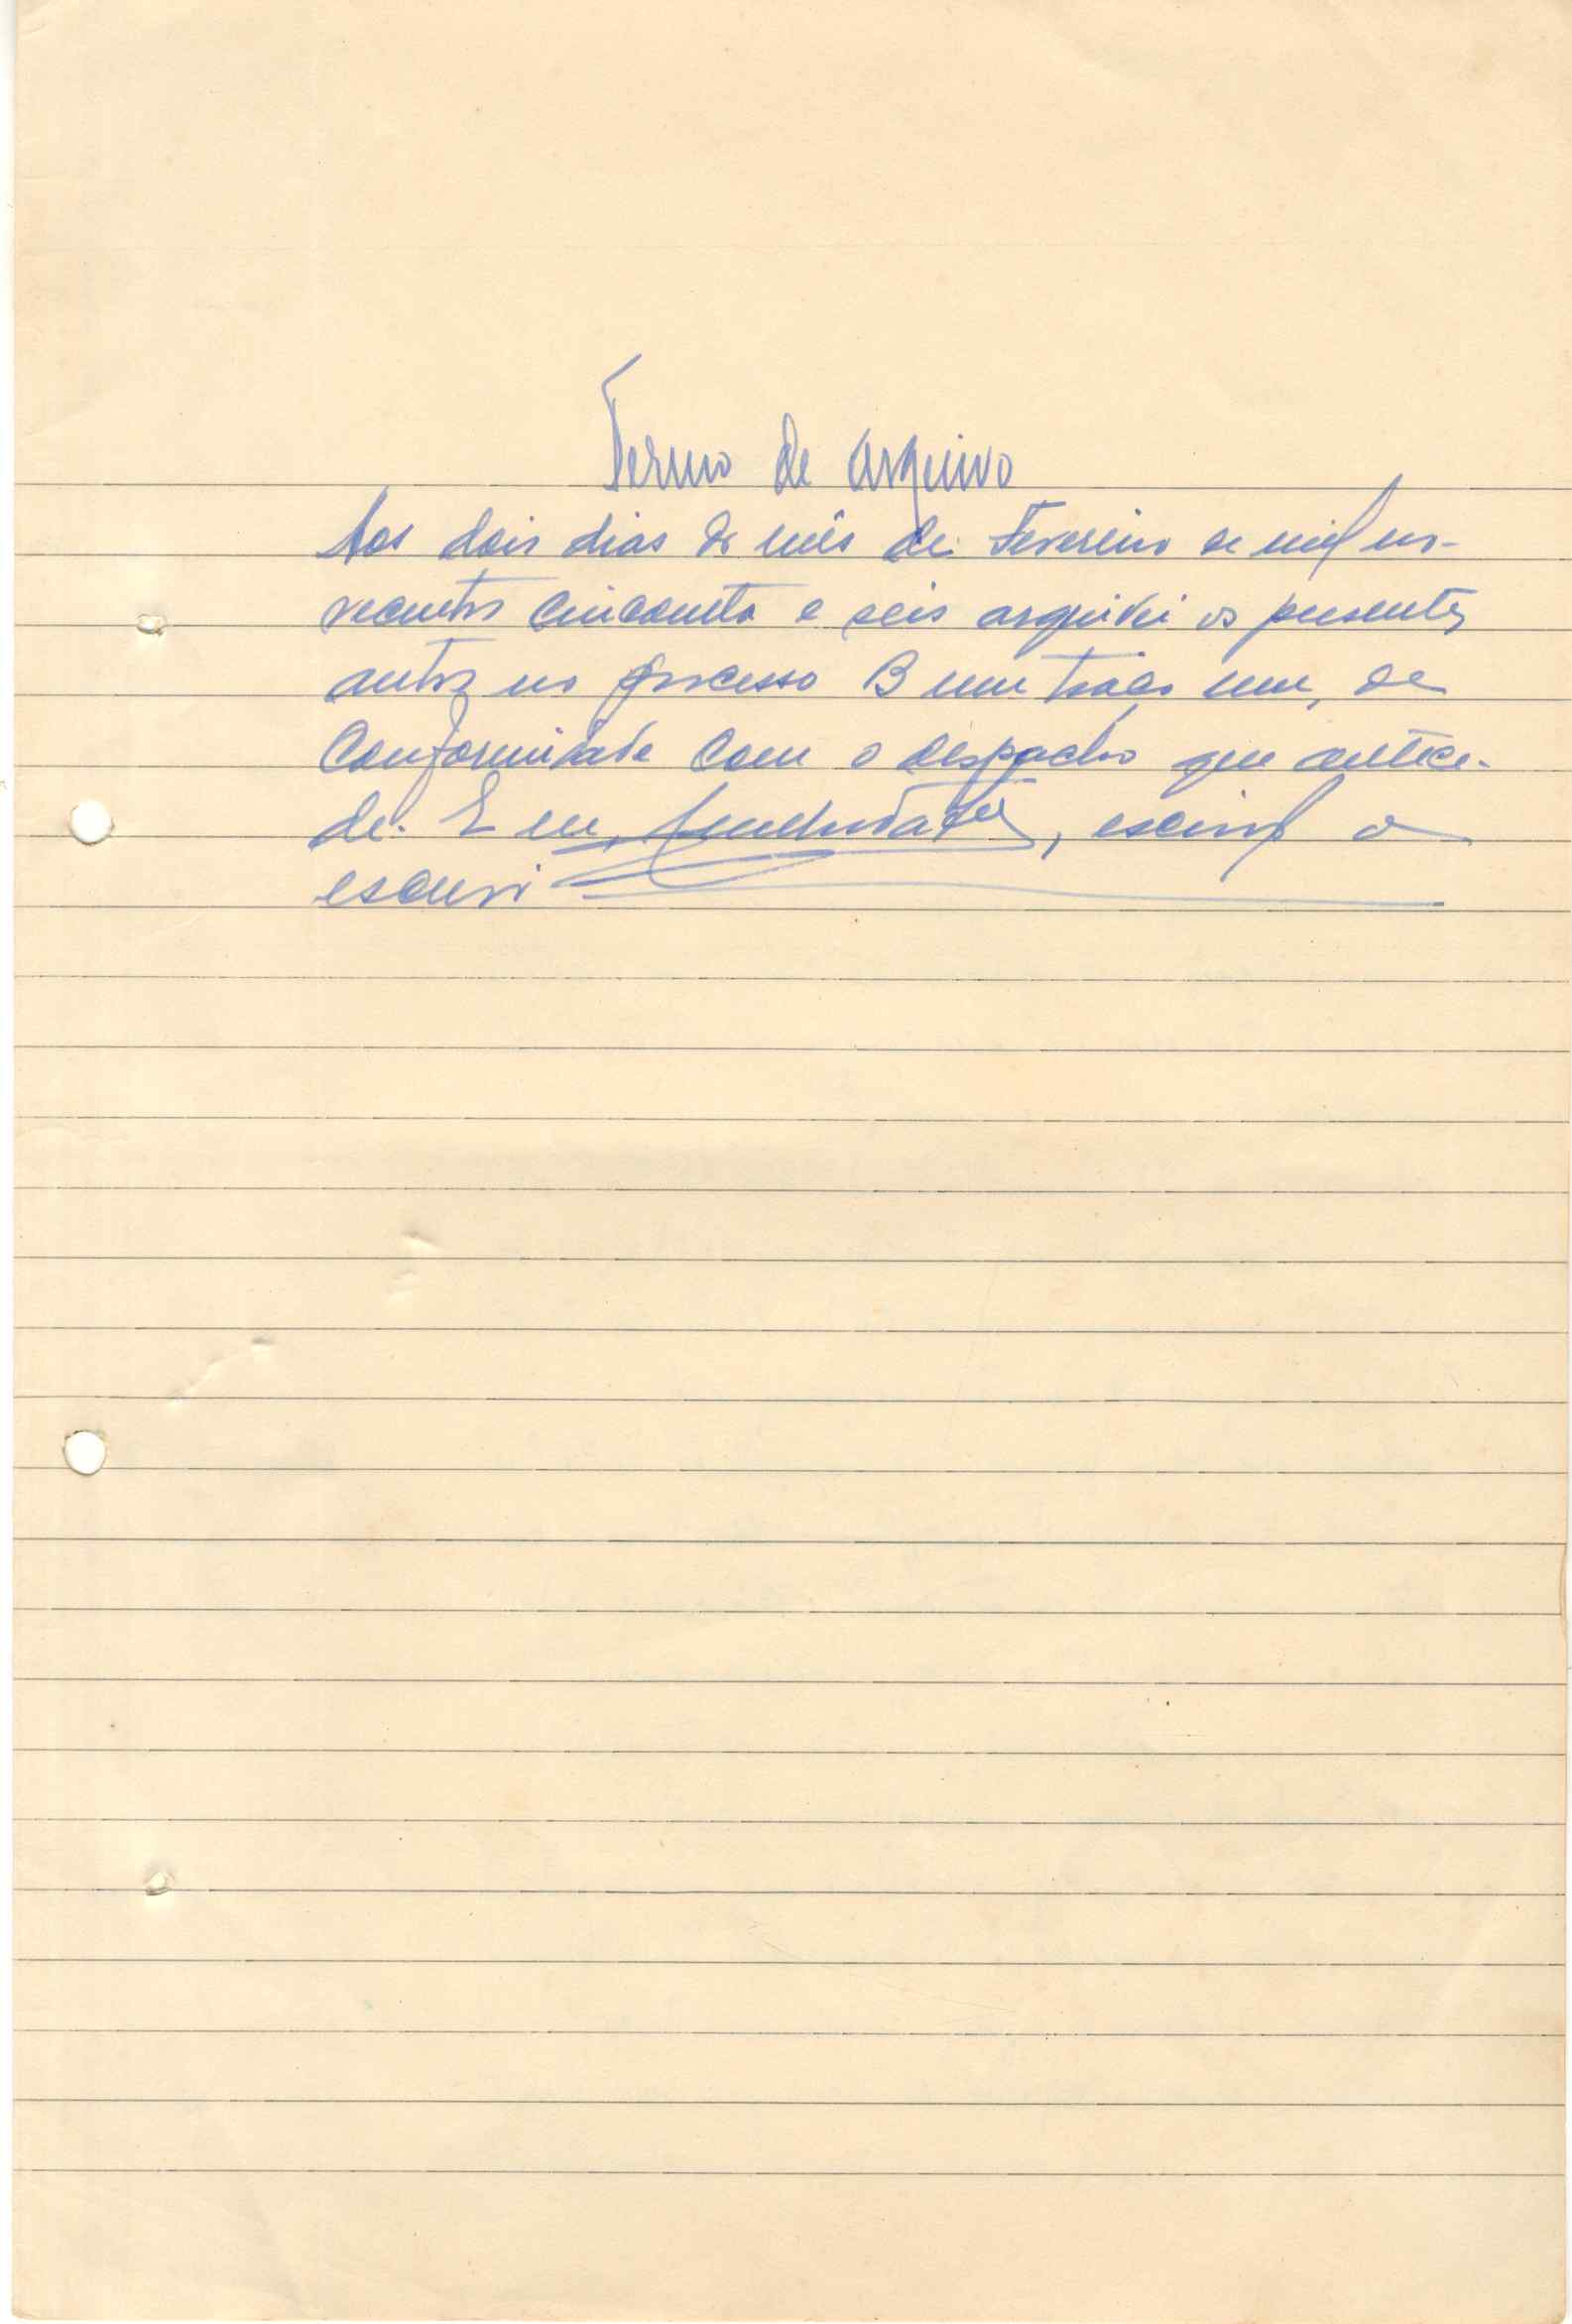 Termo de arquivo
Aos dois dias do mês de Fevereiro de mil no-
vecentos cincoenta e seis arquivei os presentes
autos no processo B um traço um, de
conformidade com o despacho que antece-
de. E eu, , escrivã o
escrevi